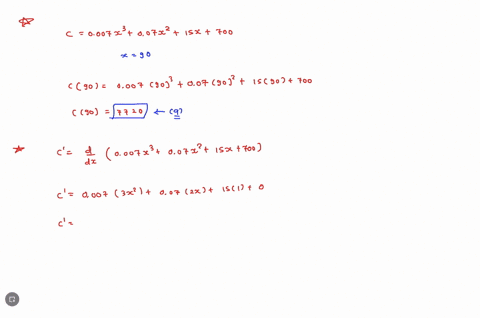 C = 0.007x³ + 0.07x² + 15x + 700
x = 90
C(90) = 0.007 (90)³ + 0.07 (90)² + 15(90) + 700
C(90) = 7720 ← (a)
C' = d/dx (0.007x³ + 0.07x² + 15x + 700)
C' = 0.007 (3x²) + 0.07 (2x) + 15(1) + 0
C' =